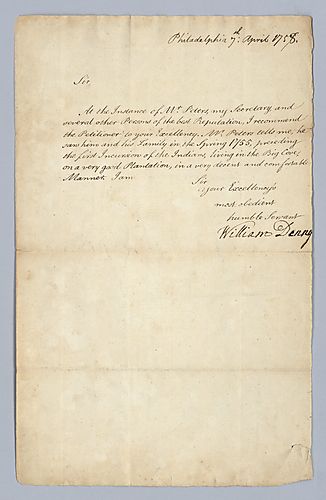 Philadelphia 7th. April 1758.
Sir,
At the Instance of Mr. Peters, my Secretary, and
several other Persons of the best Reputation, I recommend
the Petitioner to your Excellency. Mr. Peters tells me, he
saw him and his Family in the Spring 1755, preceding
the first Incursion of the Indians, living in the Big Cove,
on a very good Plantation, in a very decent and comfortable
Manner. I am
Sir
Your Excellency's
most obedient
humble Servant
William Denny